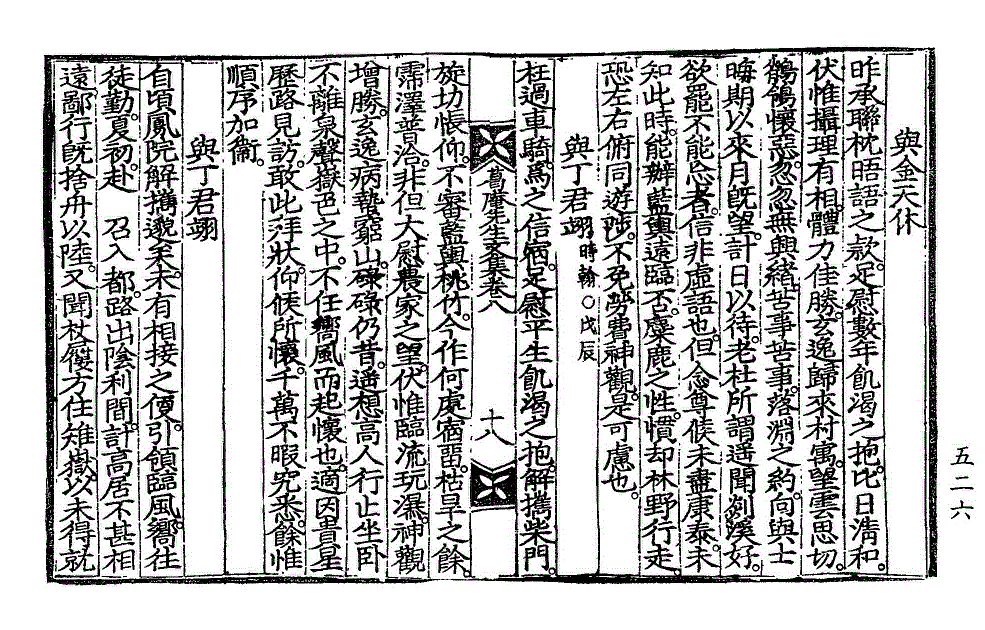 與金天休
昨承聯枕晤語之款。足慰數年飢渴之抱。比日淸和。
伏惟攝理有相。體力佳勝。玄逸歸來村寓。望雲思切。
鶺鴒懷惡。忽忽無興緖。苦事苦事。落淵之約。向與士
晦期以來月旣望。計日以待。老杜所謂遥聞剡溪好。
欲罷不能忘者。信非虛語也。但念尊候未盡康泰。未
知此時。能辦藍輿遠臨否。麋鹿之性。慣却林野行走。
恐左右俯同遊陟。不免勞費神觀。是可慮也。
與丁君翊 時翰○戊辰
枉過車騎。爲之信宿。足慰平生飢渴之抱。解携柴門。
葛庵先生文集卷八
十八
旋切悵仰。不審藍輿桃竹。今作何處宿留。枯旱之餘。
霈澤普洽。非但大慰農家之望。伏惟臨流玩瀑。神觀
增勝。玄逸病蟄窮山。碌碌仍昔。遥想高人行止坐卧
不離泉聲嶽色之中。不任嚮風而起懷也。適因貴星
歷路見訪。敢此拜狀。仰候所懷。千萬不暇究悉。餘惟
順序加衞。
與丁君翊
自頃鳳院解携邈矣。未有相接之便。引領臨風。嚮往
徒勤。夏初。赴 召入都。路出陰利間。計高居不甚相
遠鄙行旣捨舟以陸。又聞杖屨方住雉嶽。以未得就
五二六